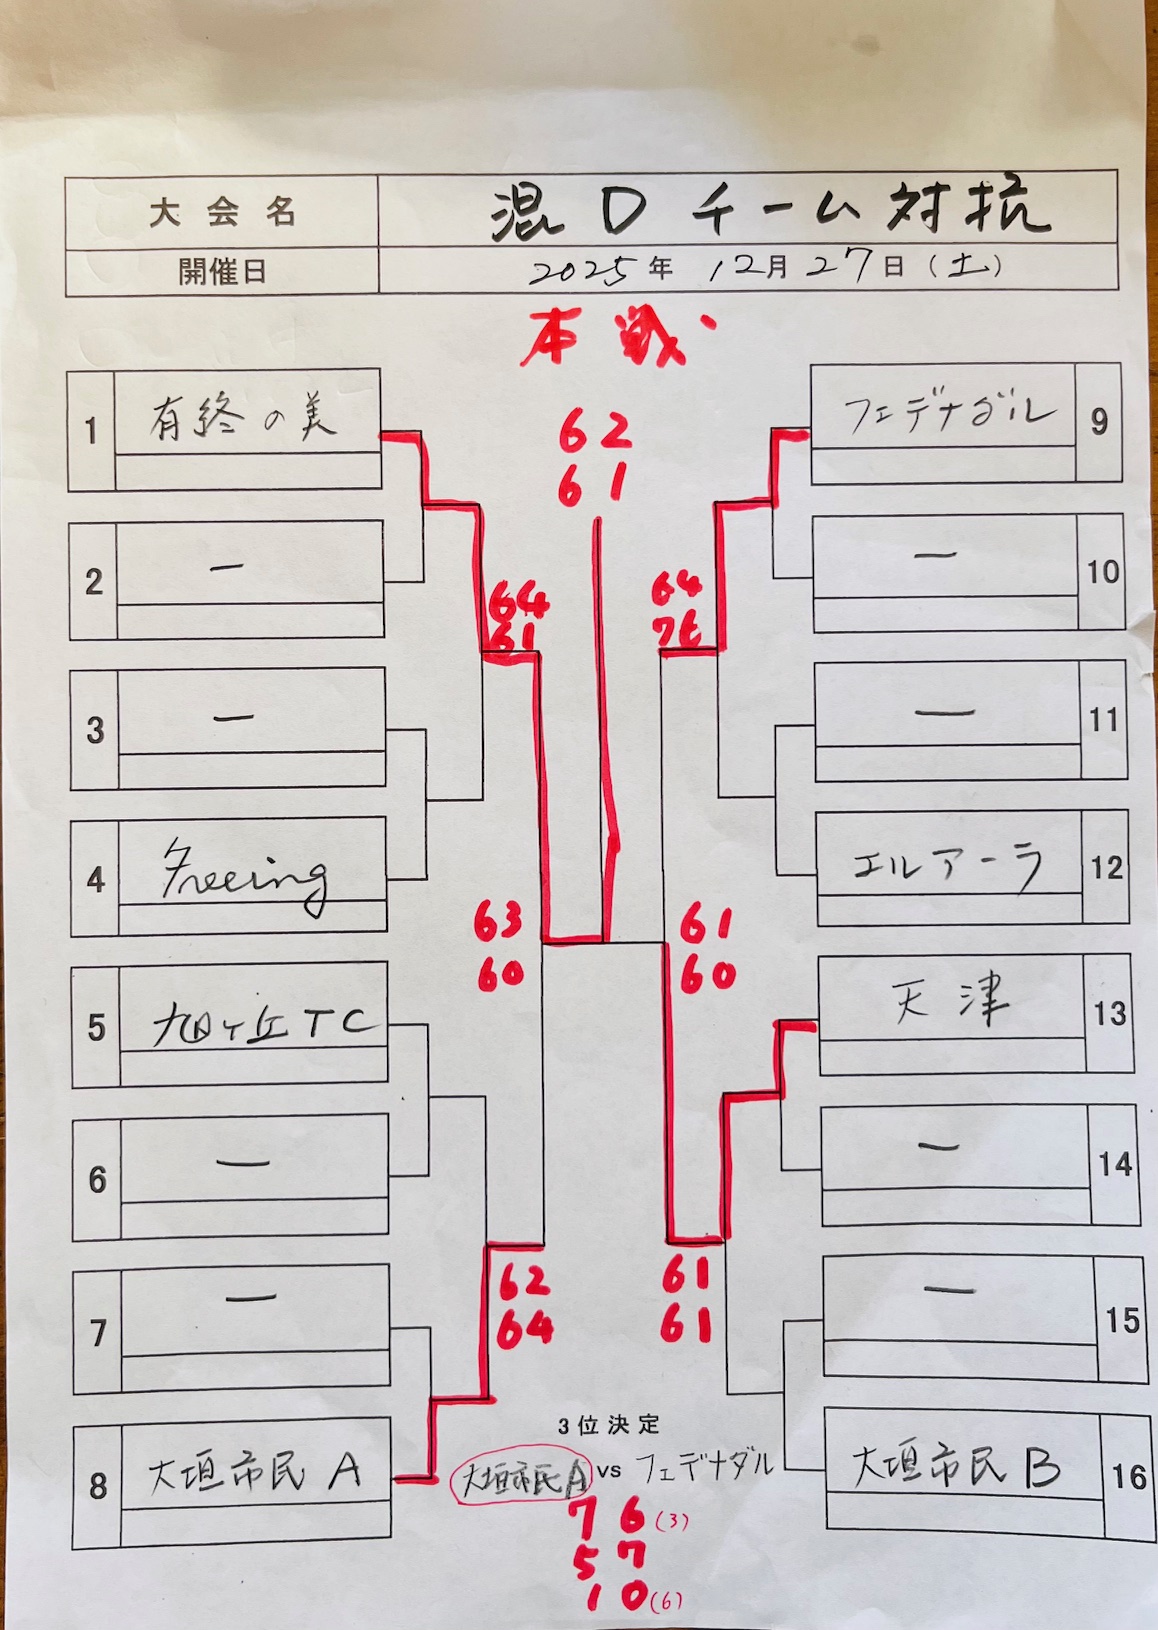 大会名 混Dチーム対抗
開催日 2025年 12月27日(土)
本戦
62
61
1 有終の美
2 ー
3 ー
4 Freeing
5 旭ヶ丘TC
6 ー
7 ー
8 大垣市民 A
64
61
63
60
62
64
9 フェデナダル
10 ー
11 ー
12 エルアーラ
13 天津
14 ー
15 ー
16 大垣市民 B
64
76
61
60
61
61
3位決定
大垣市民A vs フェデナダル
76(3)
57
10(6)